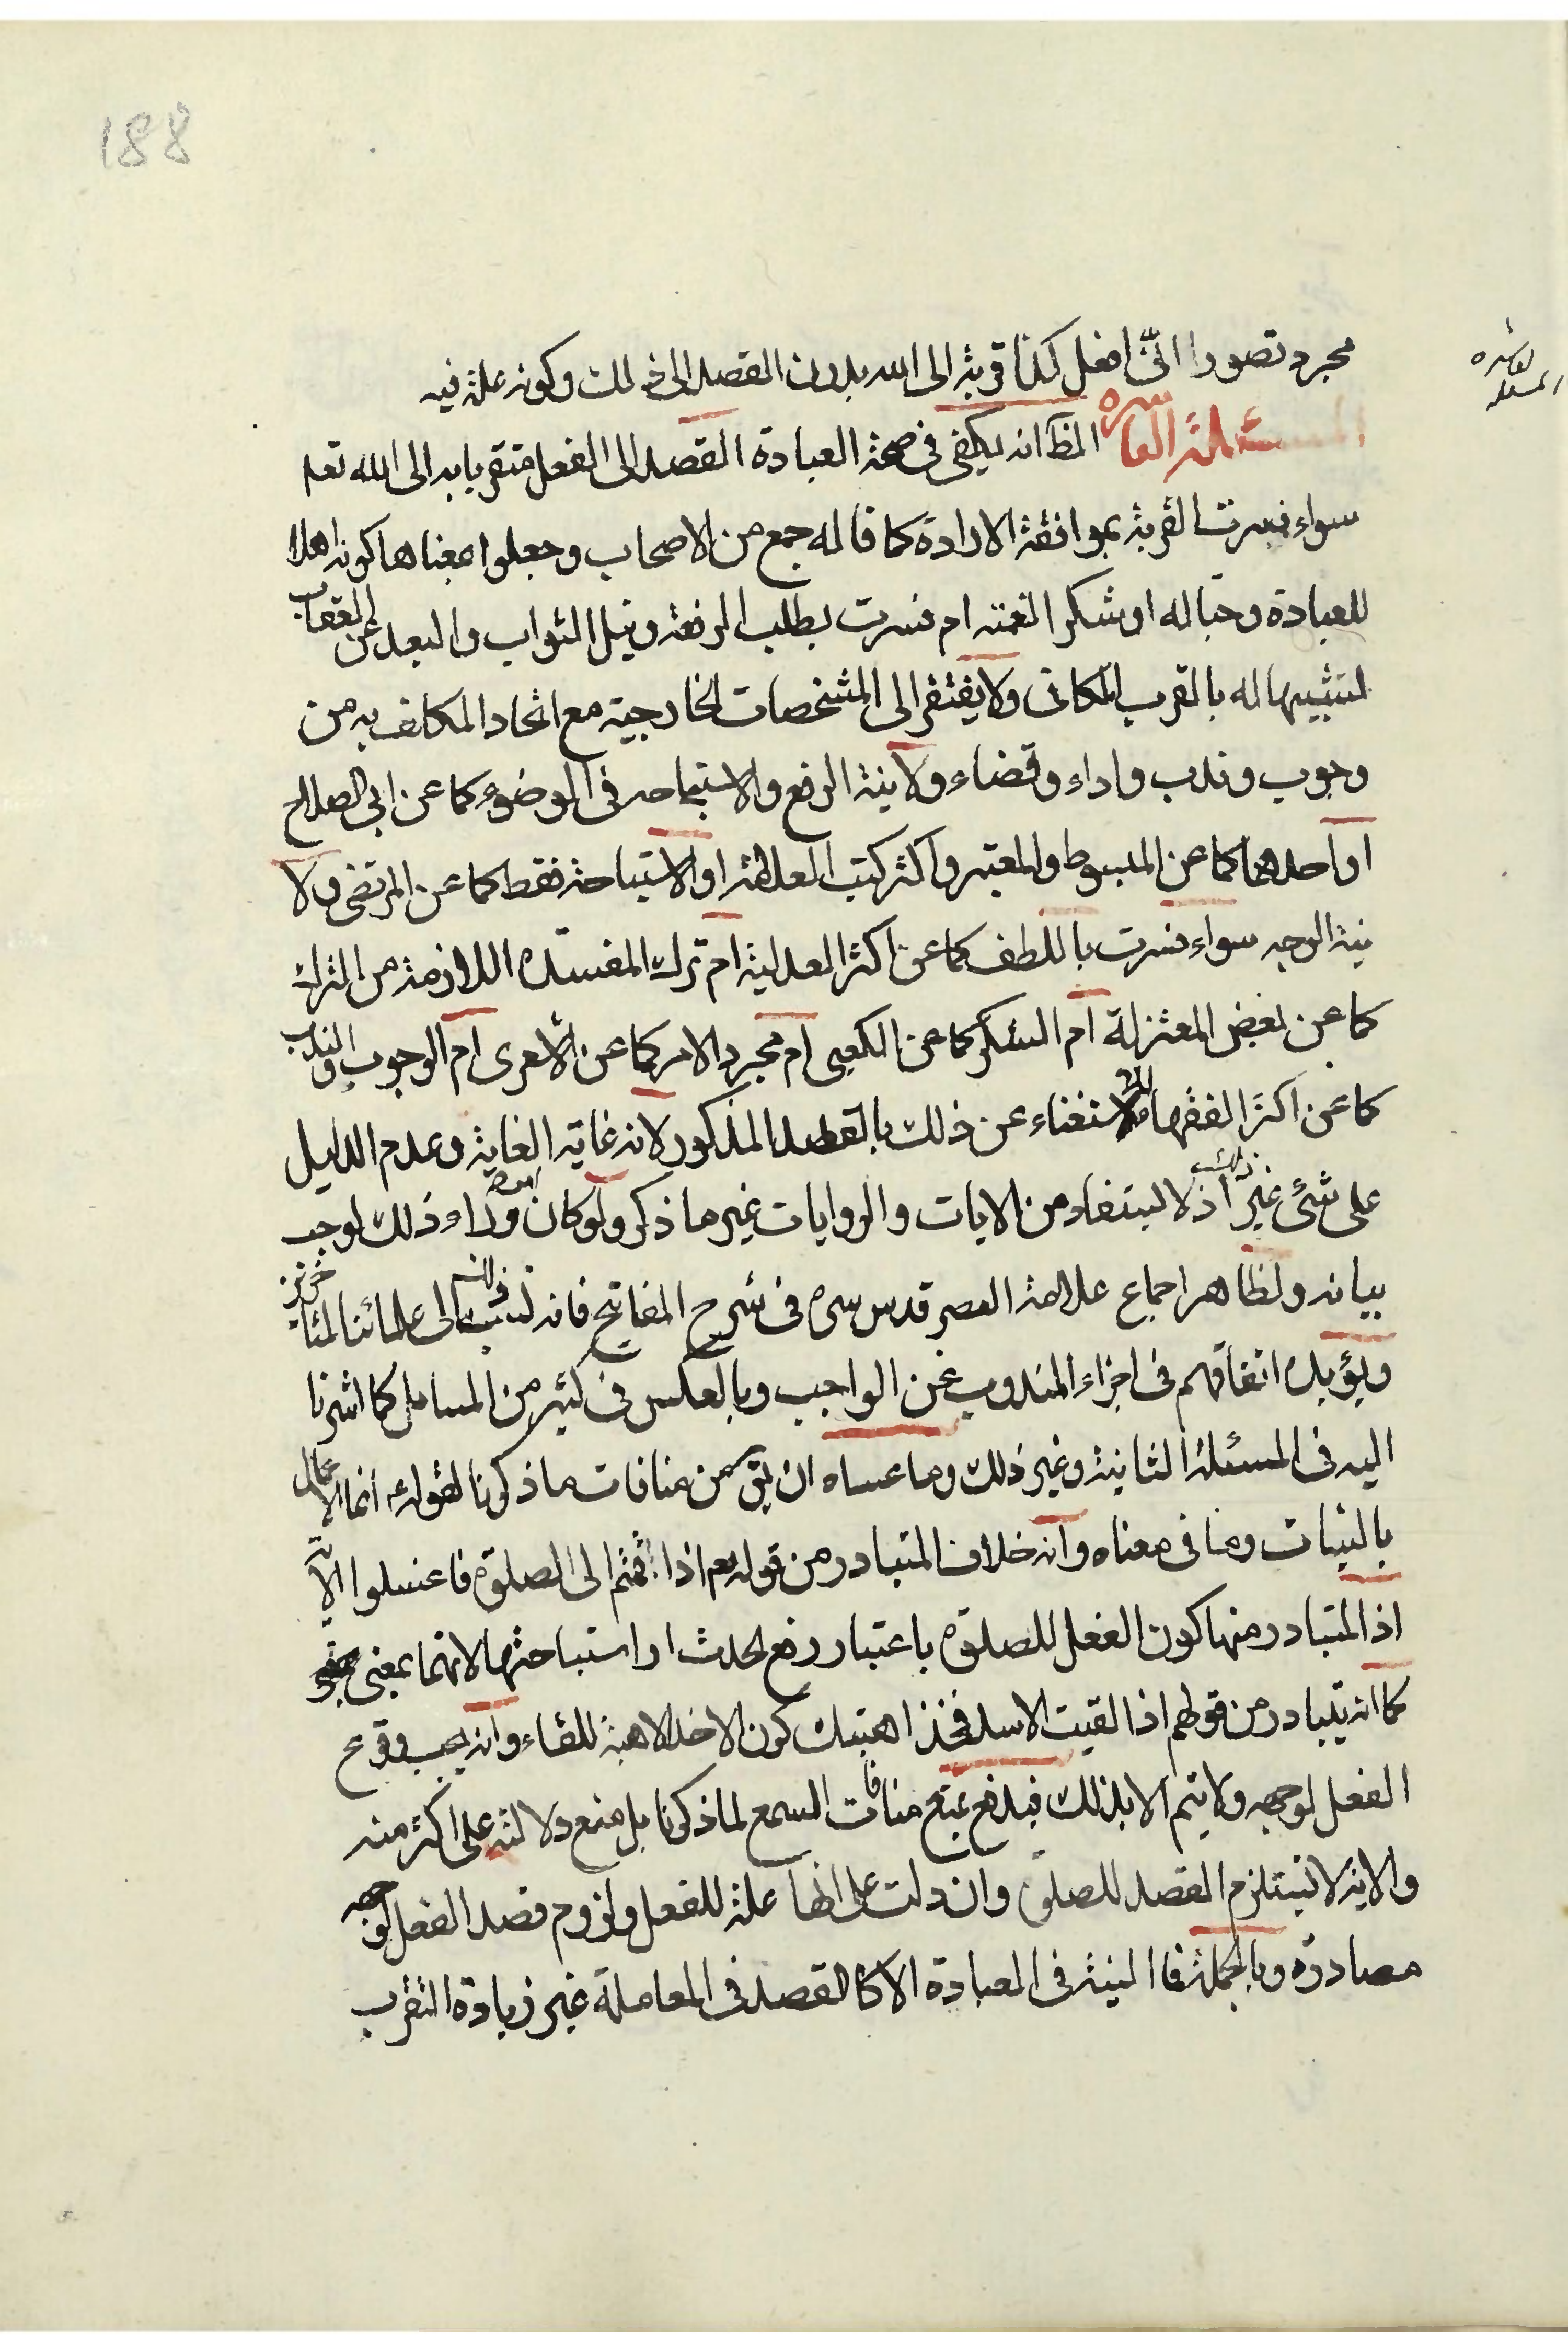 188
العاشرة
المسئلة
مجرد تصور انّى افعل كذا قربة الى الله بدون القصد الى ذلك وكونه علة فيه
المسئلة العاشرة الظ انه يكفى فى صحة العبادة القصد الى الفعل متقربا به الى الله تعا
سواء فسرت القربة بموافقة الارادة كما قاله جمع من الاصحاب وجعلوا معناها كونه اهلا
للعبادة وحبا له او شكر النعمته ام فسرت بطلب الرفعة ونيل الثواب والبعد عن العقاب
لتشبيهها له بالقرب المكانى ولا يفتقر الى المشخصات الخارجية مع اتحاد المكلف به من
وجوب وندب واداء وقضاء ولا نية الرفع والاستباحة فى الوضوء كما عن ابى الصلاح
او احدهما كما عن المبسوط والمعتبر واكثر كتب العلامة او الاستباحة فقط كما عن المرتضى ولا
نية الوجه سواء فسرت باللطف كما عن اكثر العدلية ام ترك المفسدة اللازمة من الترك
كما عن بعض المعتزلة ام الشكر كما عن الكعبى ام مجرد الامر كما عن الاشعرى ام الوجوب والندب
كما عن اكثر الفقهاء للاستغناء عن ذلك بالقصد المذكور لانه غاية الغاية وعدم الدليل
على شئ غير ذلك اذ لا يستفاد من الايات والروايات غير ما ذكر ولو كان امر وراء ذلك لوجب
بيانه ولظاهر اجماع علامة العصر قدس سره فى شرح المفاتيح فانه نسب الى علمائنا المتاخرين
ويؤيده اتفاقهم فى اجزاء المندوب عن الواجب وبالعكس فى كثير من المسايل كما اشرنا
اليه فى المسئلة الثانية وغير ذلك وما عساه ان يق من منافات ما ذكرنا لقوله انما الاعمال
بالنيات وما فى معناه وانه خلاف المتبادر من قوله تعم اذا قمتم الى الصلوة فاغسلوا الاية
اذ المتبادر منها كون الفعل للصلوة باعتبار رفع الحدث او استباحتها لانهما بمعنى
كما انه يتبادر من قولهم اذا لقيت الاسد فخذ اهبتك كون الاخذ الاهبة للقاء وانه يجب وقوع
الفعل لوجهه ولا يتم الا بذلك فيدفع بمنع منافات السمع لما ذكرنا بل منع دلالته على اكثر منه
والاية لا تستلزم القصد للصلوة وان دلت على انها علة للفعل ولزوم قصد الفعل لوجهه
مصادرة وبالجملة فما النية فى العبادة الا كالقصد فى المعاملة غير زيادة التقرب